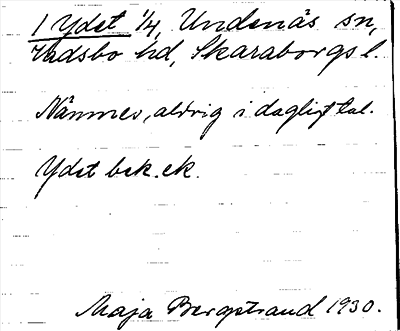 1 Ydet 1/4, Undenäs sn,
Vadsbo hd, Skaraborgs l.
Nämnes, aldrig i dagligt tal.
Ydet bek. ek.
Maja Bergstrand 1930.